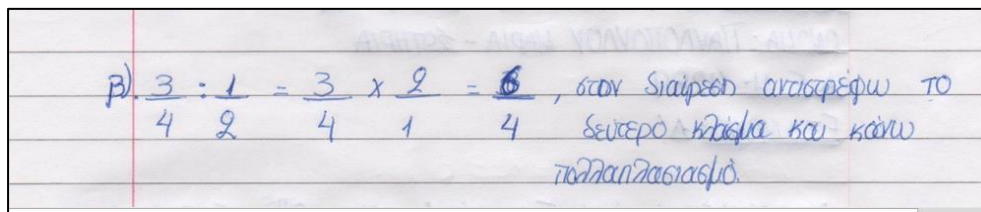 β). 3/4 : 1/2 = 3/4 x 2/1 = 6/4 , στην διαίρεση αντιστρέφω το
δευτερό κλάσμα και κάνω
πολλαπλασιασμό.